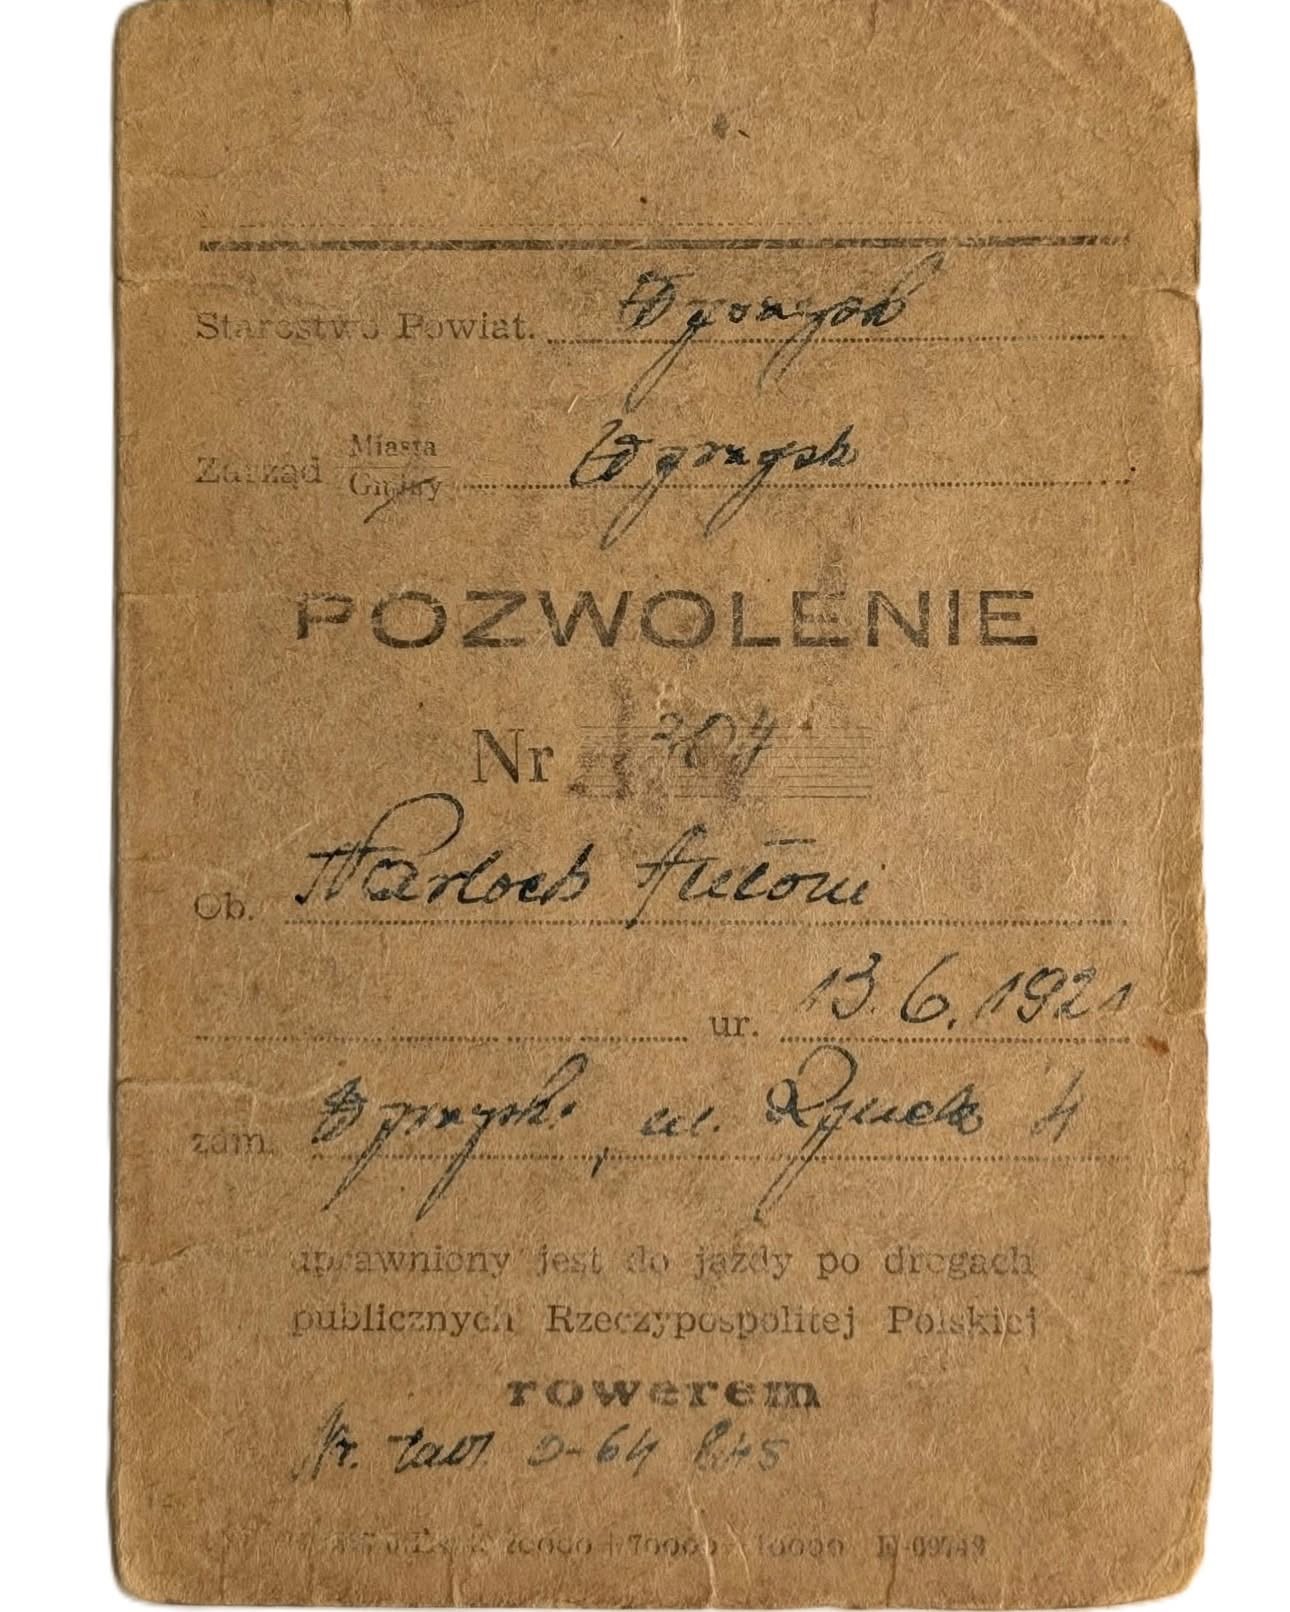 Starostwo Powiat. Wyrzysk
Zarząd Miasta Gminy Wyrzysk
POZWOLENIE
Nr 204
Ob. Narloch Antoni
ur. 13.6.1921
zam. Wyrzysk, ul. Rynek 4
uprawniony jest do jazdy po drogach
publicznych Rzeczypospolitej Polskiej
rowerem
Nr. tabl. D-64 845
70000 10000 E-09743